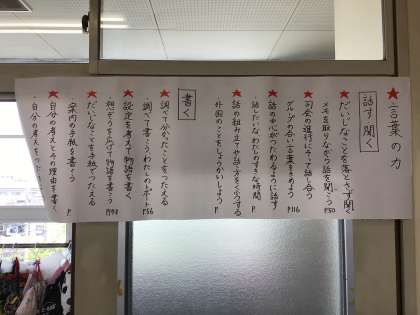 ★言葉の力
話す・聞く
★だいじなことを落とさず聞く
メモを取りながら話を聞こう P50
★司会の進行にそって話し合う
グループの合い言葉をきめよう P116
★話の中心がつたわるように話す
話したいな、わたしのすきな時間 P
★話の組み立てや話し方をくふうする
外国のことをしょうかいしよう P
書く
★調べて分かったことをつたえる
調べて書こう、わたしのレポート P56
★設定を考えて物語を書く
想ぞうを広げて物語を書こう P98
★だいじなことを手紙でつたえる
案内の手紙を書こう P
★自分の考えとその理由を書く
自分の考えをつたえ